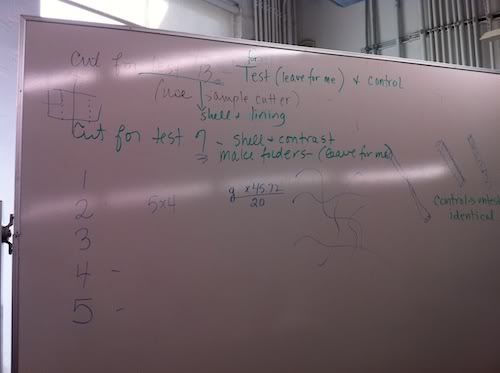 Cut for test 13 - for Test (leave for me) & control
(use sample cutter)
shell + lining
Cut for test 7 - shell + contrast
⇒ make faders - (leave for me)
1
2 5x4 g x 45.72
20
3
Controls
identical
4 -
5 -